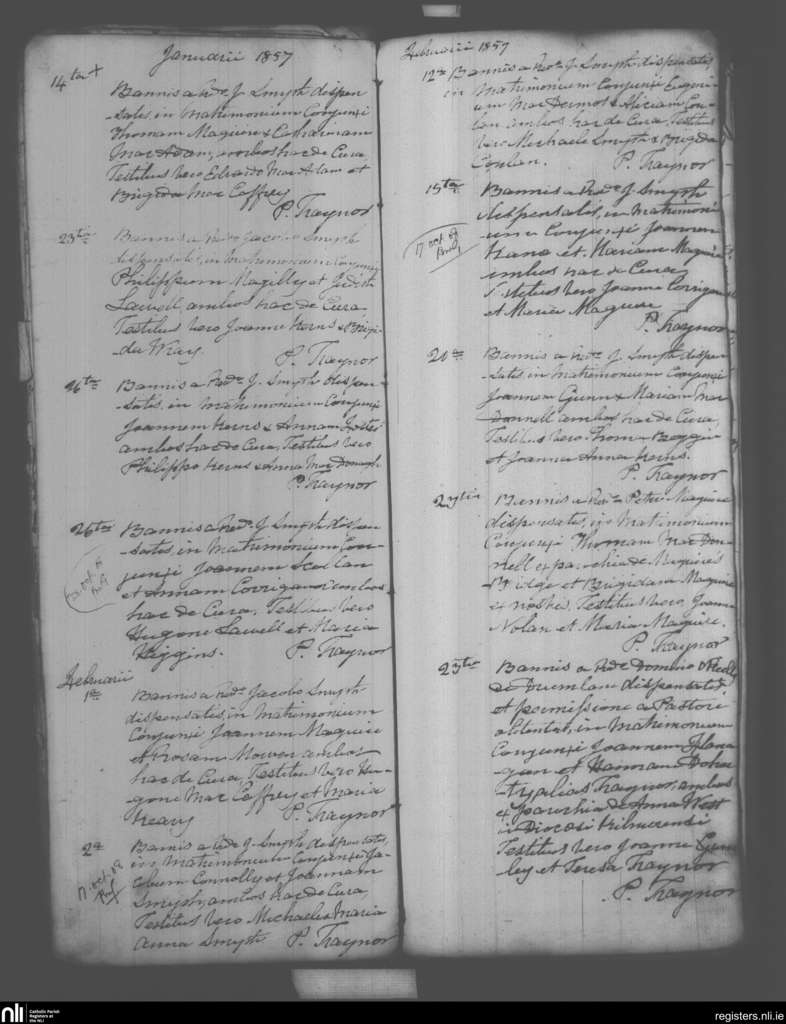 Januarii 1857
14ta +
Bannis a Rdo. J. Smyth dispen
-satis, in matrimonium Conjunxi
Thomam Maguire & Catharinam
Mac Adam, ambos hac de Cura,
Testibus vero Edvardo Mac Adam et
Brigida Mac Caffrey
P. Traynor
23tia Bannis a Revo Jacobo Smyth
dispensatis, in matrimonium Conjunxi
Philippum Magilly et Judith
Lawell ambos hac de Cura
Testibus vero Joanne Kerns & Brigi-
da Wray. P. Traynor
26ta Bannis a Rdo. J. Smyth dispen-
-satis, in matrimonium Conjunxi
Joannem Kerns & Annam
ambos hac de Cura, Testibus vero
Philippo Kerns & Anna Mac Donagh
P. Traynor
26ta Bannis a Rdo. J. Smyth dispen
-satis, in matrimonium Con-
junxi Joannem Scallan
et Annam Corrigan ambos
hac de Cura, Testibus vero
Eugene Lawell et Maria
Higgins. P. Traynor
Februarii
1a Bannis a Rdo. Jacobo Smyth
dispensatis, in matrimonium
Conjunxi Joannem Maguire
et Rosam ambos
hac de Cura, Testibus vero Eu-
-gene Mac Caffrey et Maria
Keary P. Traynor
2a Bannis a Rdo J. Smyth dispensatis,
in matrimonium Conjunxi Ja-
cobum Connolly et Joannam
Smyth, ambos hac de Cura,
17 Oct. 09
Testibus vero Michaele & Maria
Anna Smyth P. Traynor
Februarii 1857
12a Bannis a Revo. J. Smyth dispensatis
in Matrimonium Conjunxi Eugeni-
um Mac Dermot & Miriam Con-
lan ambos hac de Cura, Testibus
vero Michaele Smyth & Brigida
Conlan. P. Traynor
15ta Bannis a Rdo J. Smyth
dispensatis, in matrimoni
17 Oct 09
um Conjunxi Joannem
Kane et Mariam Maguire
ambos hac de Cura
Testibus vero Joanne Corrigan
et Maria Maguire
P. Traynor
Bannis a Rdo. J. Smyth dispen
-satis, in matrimonium Conjunxi
Joannem Gunn & Mariam Mac
Donnell ambos hac de Cura,
Testibus vero Thoma
et Joanna Anna Kerns.
P. Traynor
Bannis a Revo Petro Maguire
dispensatis, in Matrimonium
Conjunxi Thomam Mac Don-
nell ex parochia de Maguire's
Bridge et Brigidam Maguire
ex nostris, Testibus vero Joanne
Nolan et Maria Maguire.
P. Traynor
Bannis a Rdo Domino
de Drumlane dispensatis,
et permissione a Pastori
obtentat, in matrimonium
Conjunxi Joannem Flana
gan et Hannam Doher
ty alias Traynor, ambos
ex Parochia de Anna West
in Diocesi Kilmorensi
Testibus vero Joanne
ley et Teresa Traynor
P. Traynor
nli Catholic Parish
Registers at
the NLI
registers.nli.ie